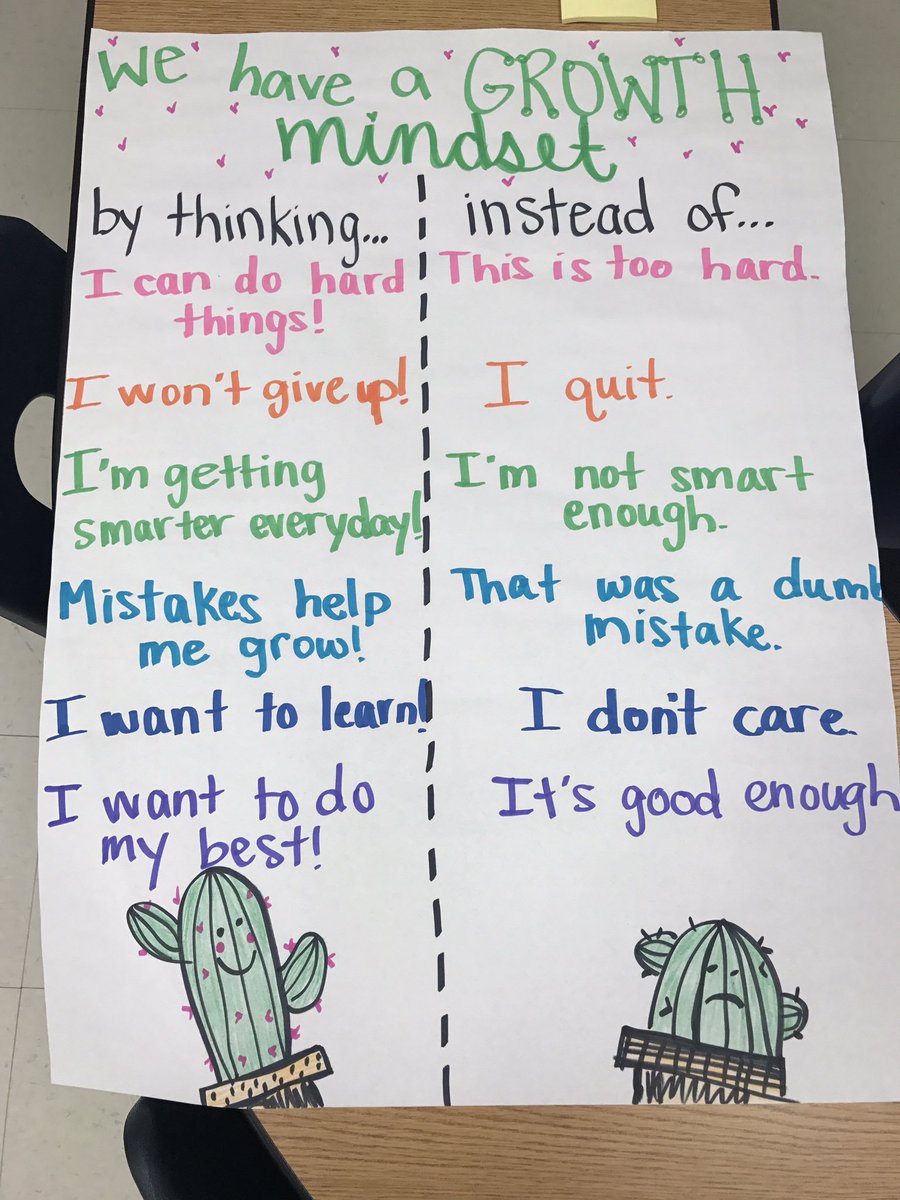 We have a GROWTH
mindset
by thinking...
I can do hard
things!
I won't give up!
I'm getting
smarter everyday!
Mistakes help
me grow!
I want to learn!
I want to do
my best!
instead of...
This is too hard.
I quit.
I'm not smart
enough.
That was a dumb
mistake.
I don't care.
It's good enough